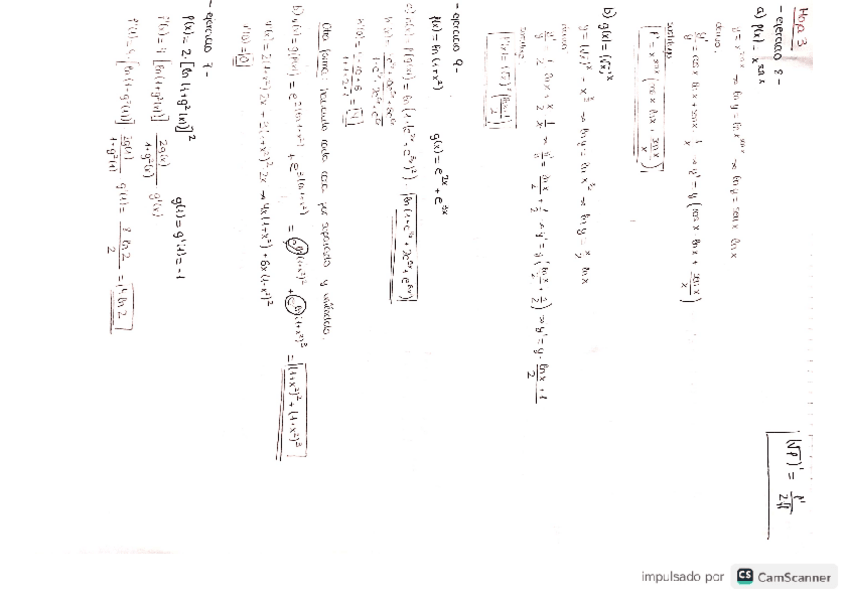 Hoja 3
- ejercicio 8 -
a) f(x) = x^senx
y = x^senx → ln y = ln x^senx → ln y = senx lnx
deriva.
y'/y = cosx lnx + senx · 1/x → y' = y (cosx · lnx + senx/x)
sustituyo
f' = x^senx (cosx lnx + senx/x)
(√f)' = f'/2√f
b) g(x) = (√x)^x
y = (√x)^x = x^(x/2) → ln y = ln x^(x/2) → ln y = x/2 lnx
deriva
y'/y = 1/2 lnx + x/2 · 1/x → y'/y = lnx/2 + 1/2 → y' = y (lnx/2 + 1/2) → y' = y · (lnx + 1)/2
sustituyo
- ejercicio 9 -
f(x) = ln(1+x²) g(x) = e^2x + e^3x
Otra forma: haciendo cada cosa por separado y uniéndolo.
b) v(x) = g(f(x)) = e^(2 ln(1+x²)) + e^(3 ln(1+x²)) = e^ln(1+x²)² + e^ln(1+x²)³ = (1+x²)² + (1+x²)³
v'(x) = 2(1+x²) 2x + 3(1+x²)² 2x → 4x(1+x²) + 6x(1+x²)²
v'(0) = 0
- ejercicio 7 -
f(x) = 2 · [ln(1+g²(x))]² g(1) = g'(1) = -1
f'(x) = 4 [ln(1+g²(x))] 2g(x)/1+g²(x) · g'(x)
f'(1) = 4 [ln(1+g²(1))] 2g(1)/1+g²(1) · g'(1) = 8 ln2/2 = 4 ln2
impulsado por CS CamScanner